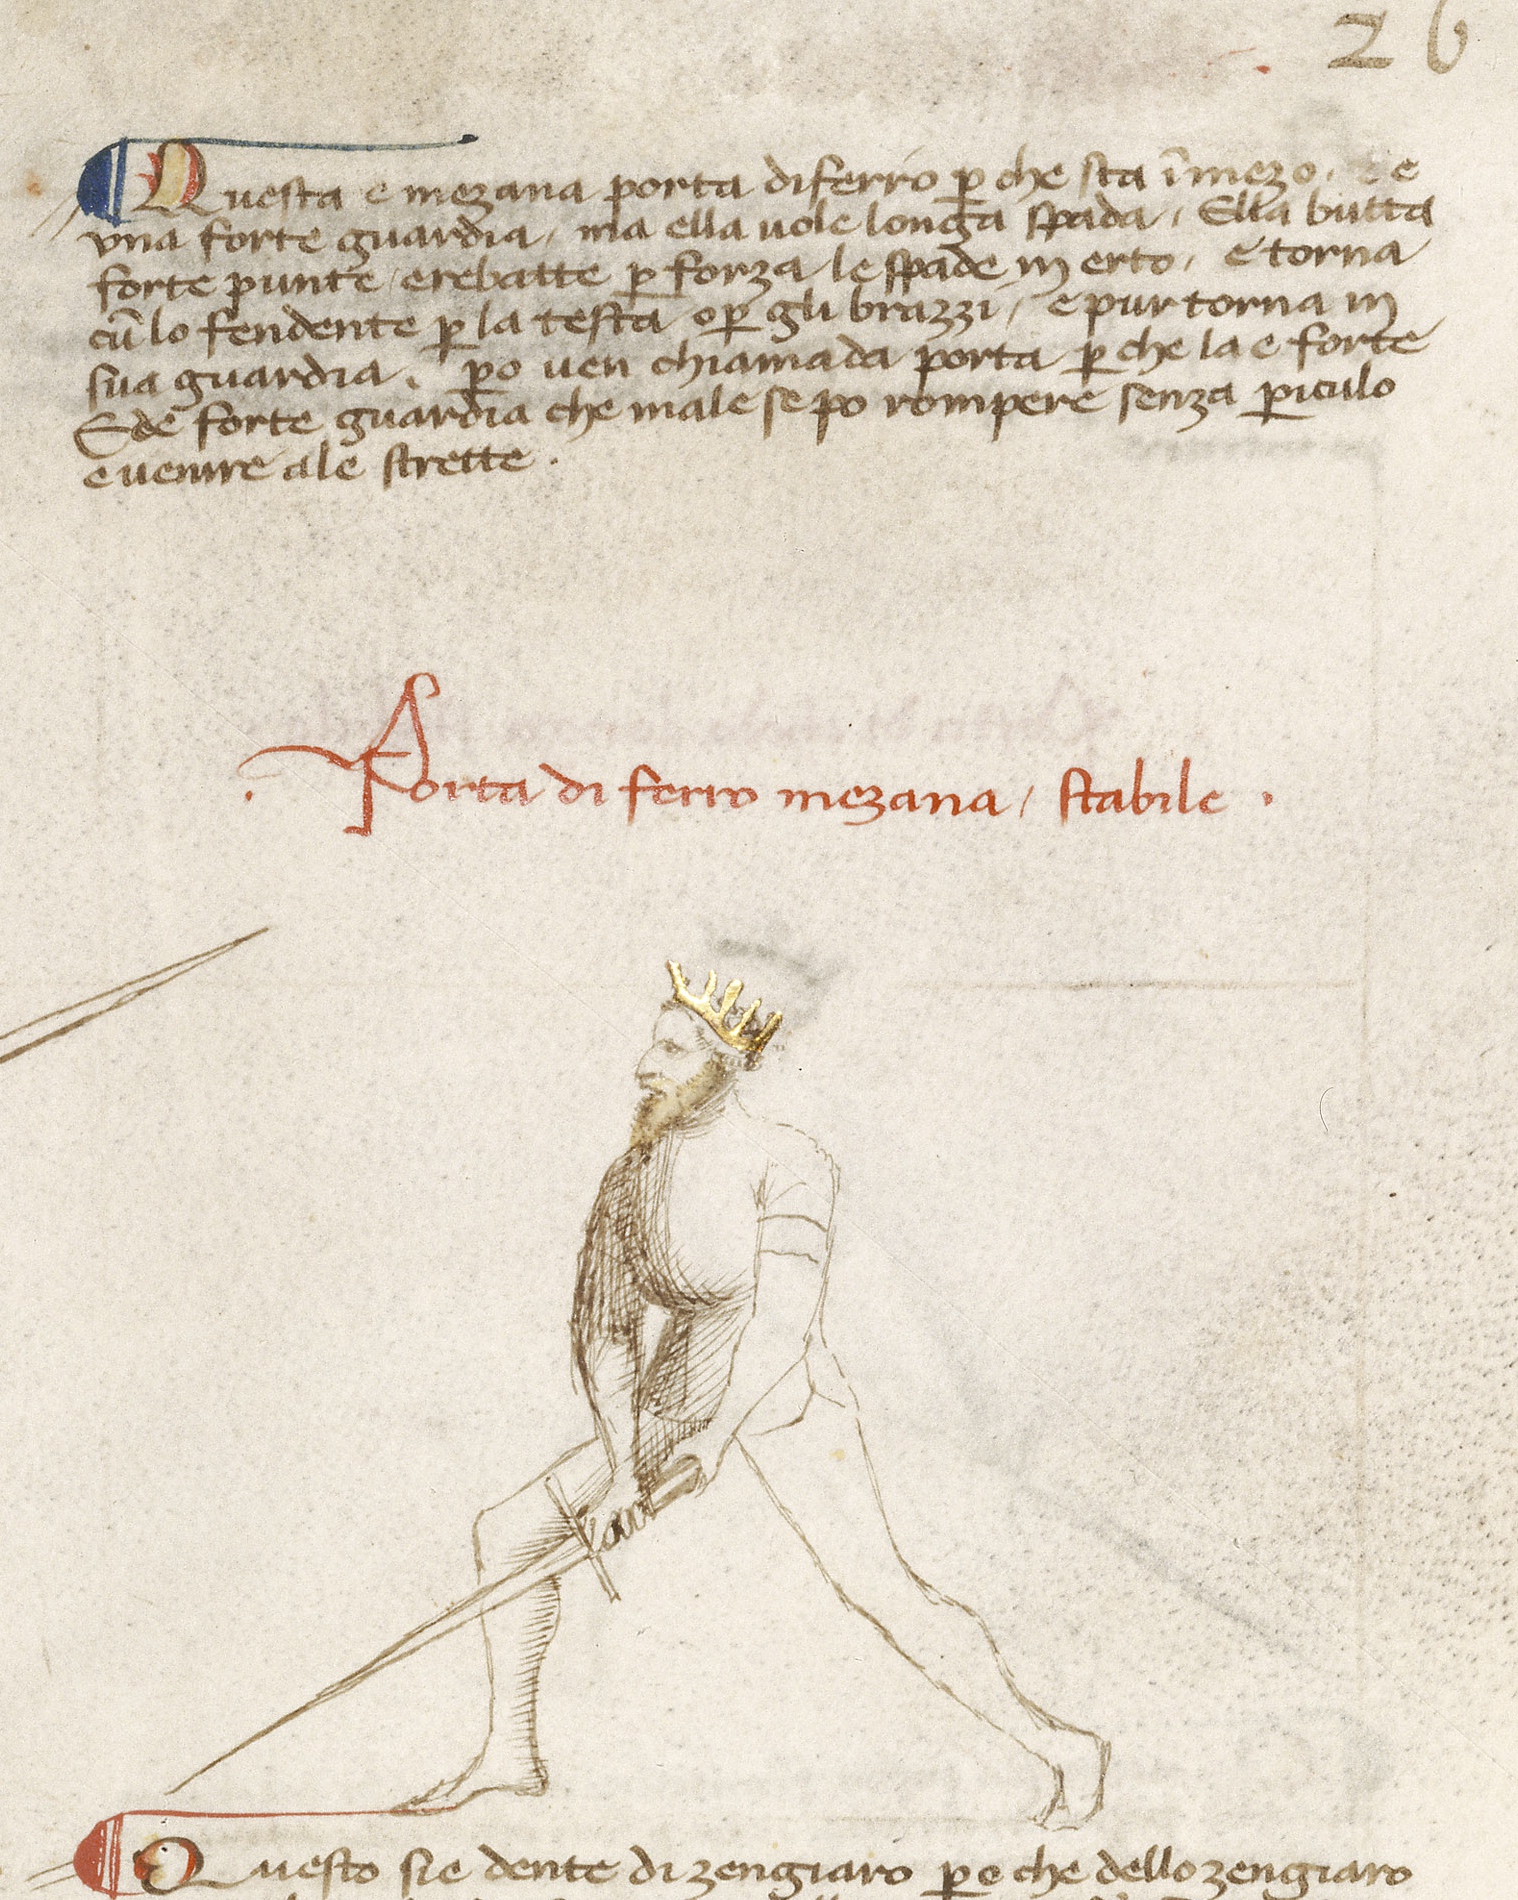 26
Questa e mezana porta di ferro p che sta ĩ mezo. e e
vna forte guardia, ma ella uole longa spada, Ella butta
forte punte e rebatte p forza le spade in erto, e torna
cũ lo fendente p la testa o p gli brazzi, e pur torna in
sua guardia. po uen chiamada porta p che la e forte
Ed e forte guardia che male se po rompere senza piculo
e uenire a le strette.
Porta di ferro mezana, stabile.
Questo sie dente di zengiaro po che dello zengiaro